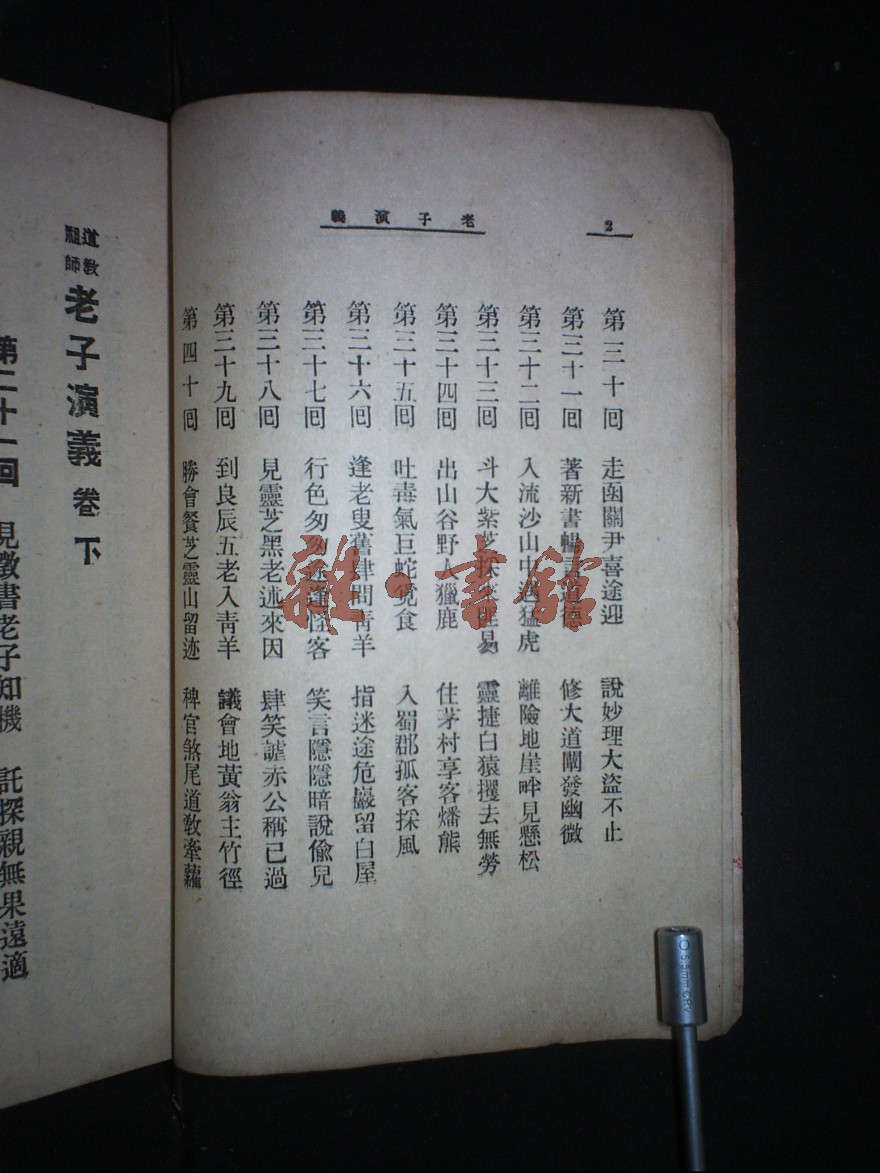 2
老子演義
第三十回 走函關尹喜途迎 說妙理大盜不止
第三十一回 著新書暢言道德 修大道闡發幽微
第三十二回 入流沙山中遇猛虎 離險地崖畔見懸松
第三十三回 斗大紫芝採來匪易 靈捷白猿攫去無勞
第三十四回 出山谷野人獵鹿 住茅村享客燔熊
第三十五回 吐毒氣巨蛇覓食 入蜀郡孤客採風
第三十六回 逢老叟舊肆問青羊 指迷途危巖留白屋
第三十七回 行色匆匆途逢怪客 笑言隱隱暗說偷兒
第三十八回 見靈芝黑老述來因 肆笑謔赤公稱已過
第三十九回 到良辰五老入青羊 議會地黃翁主竹徑
第四十回 勝會餐芝靈山留迹 稗官煞尾道教牽蘿
道教祖師 老子演義 卷下
第二十一回 見徵書老子知機 託探親無果遠適
雜·書館